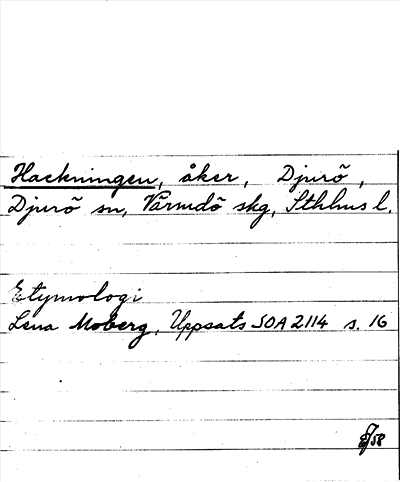 Hackningen, åker, Djurö,
Djurö sn, Värmdö skg, Sthlms l.
Etymologi
Lena Moberg, Uppsats SOA 2114 s. 16